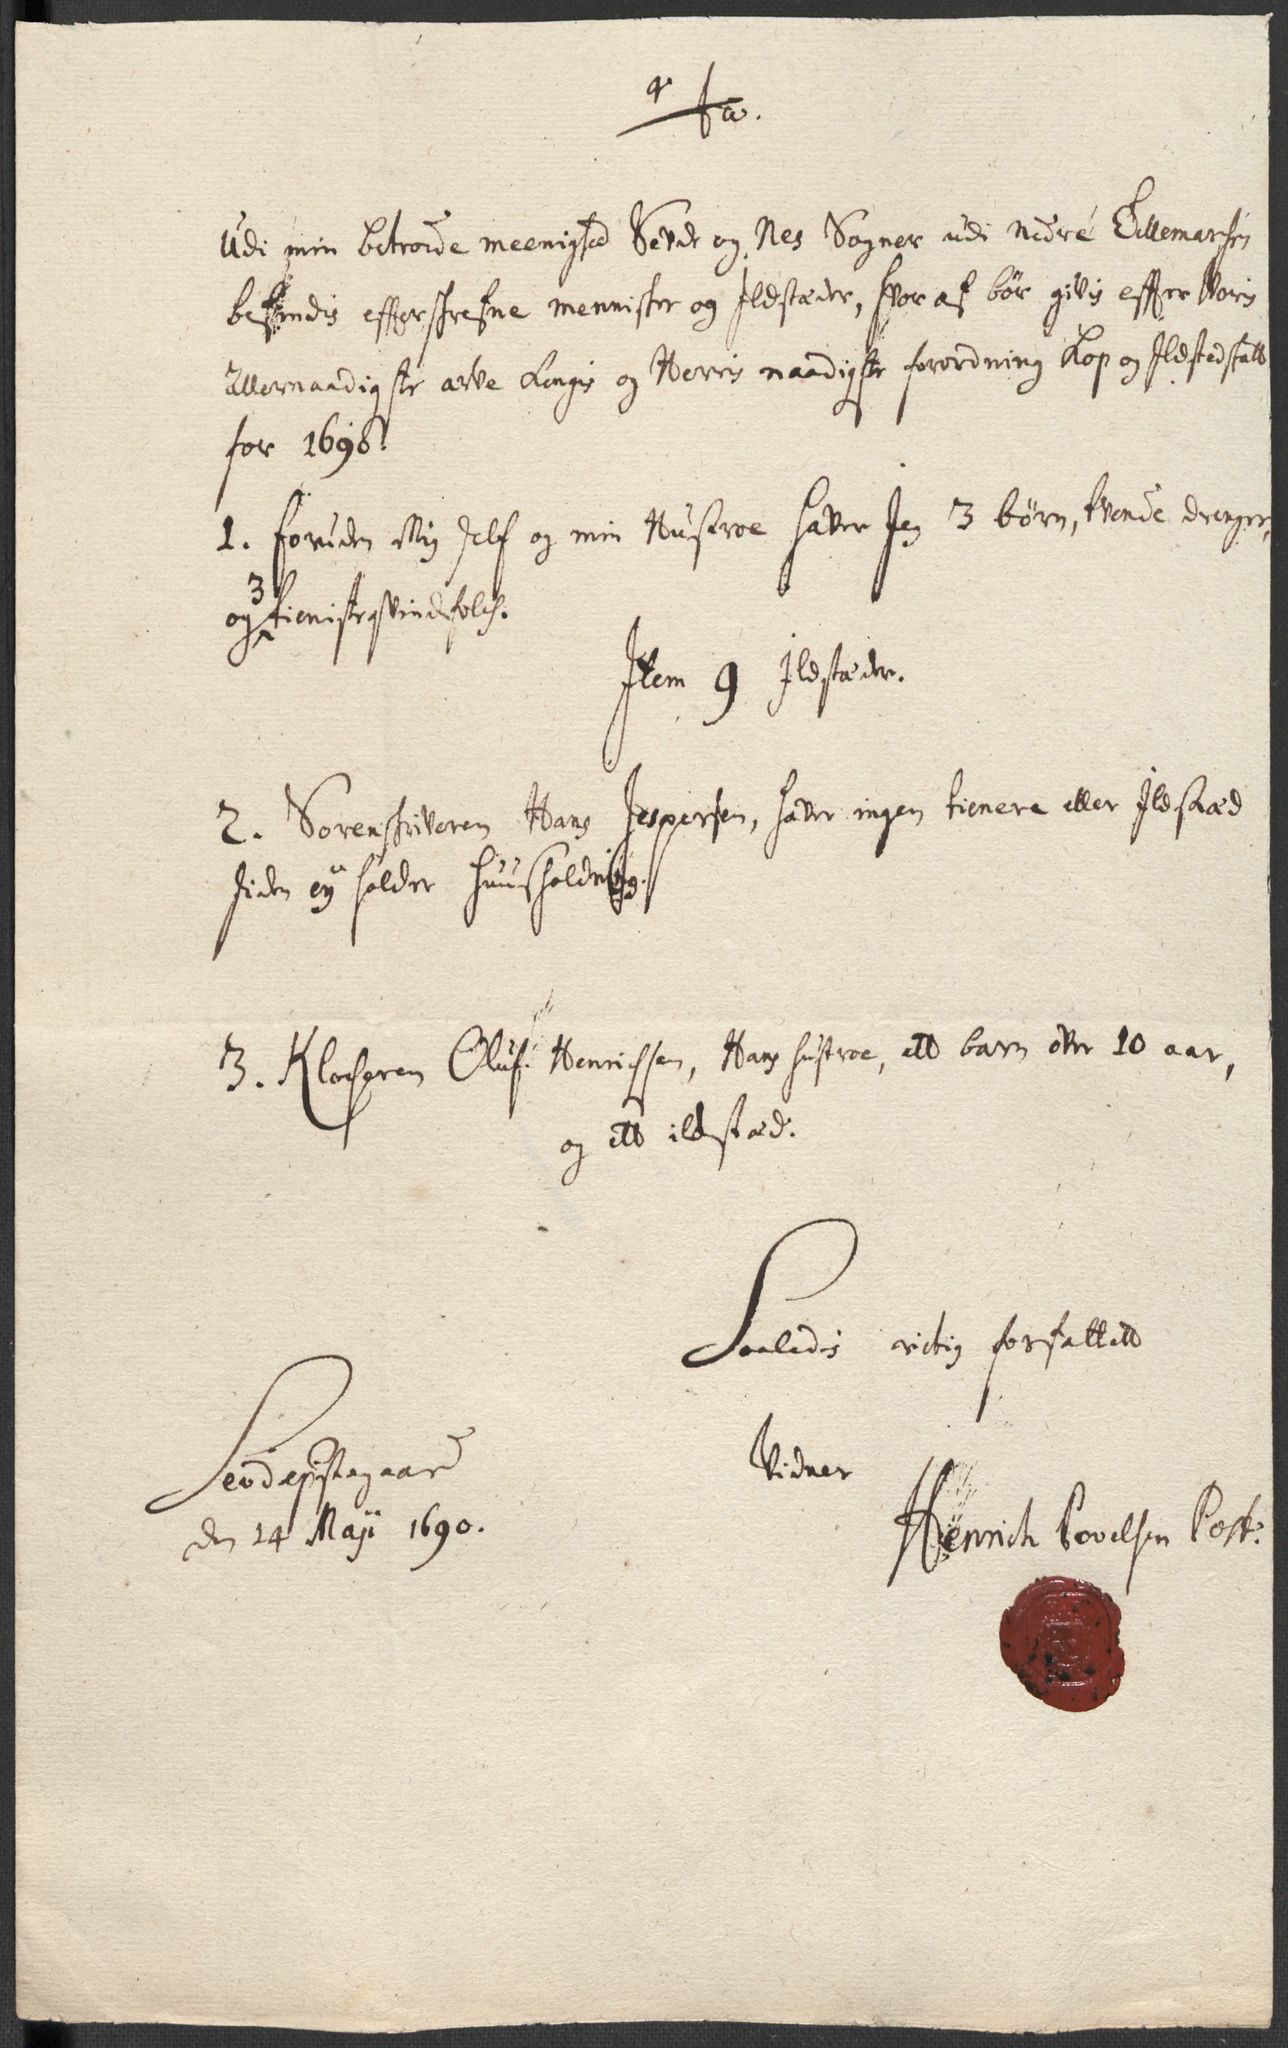 Udi min betroede meenighed Sevde og Nes Sogner udi nedre Tillemarchen
befindis effterschrefne mennister og Ildstæder, hvoraf bör givis effter Voris
Allernaadigste arve Kongis og Herris naadigste forordning Kop og Ildstedskatt
for 1690.
1. foruden Mig self og min Hustroe haver Jeg 3 börn, tvende drenger,
og 3 tienisteqvindfolch.
Item 9 Ildstæder.
2. Sorenskriveren Hans Jespersen, haver ingen tienere eller Ildstæd
siden ey holder huusholdning.
3. Klocheren Oluf Henrichsen, Hans hustroe, ett barn över 10 aar,
og ett ildstæd.
Saaledis rictig forfattett
Vidner
Sevdepræstegaard
den 24 Maji 1690.
Henrich Povelsen Past: